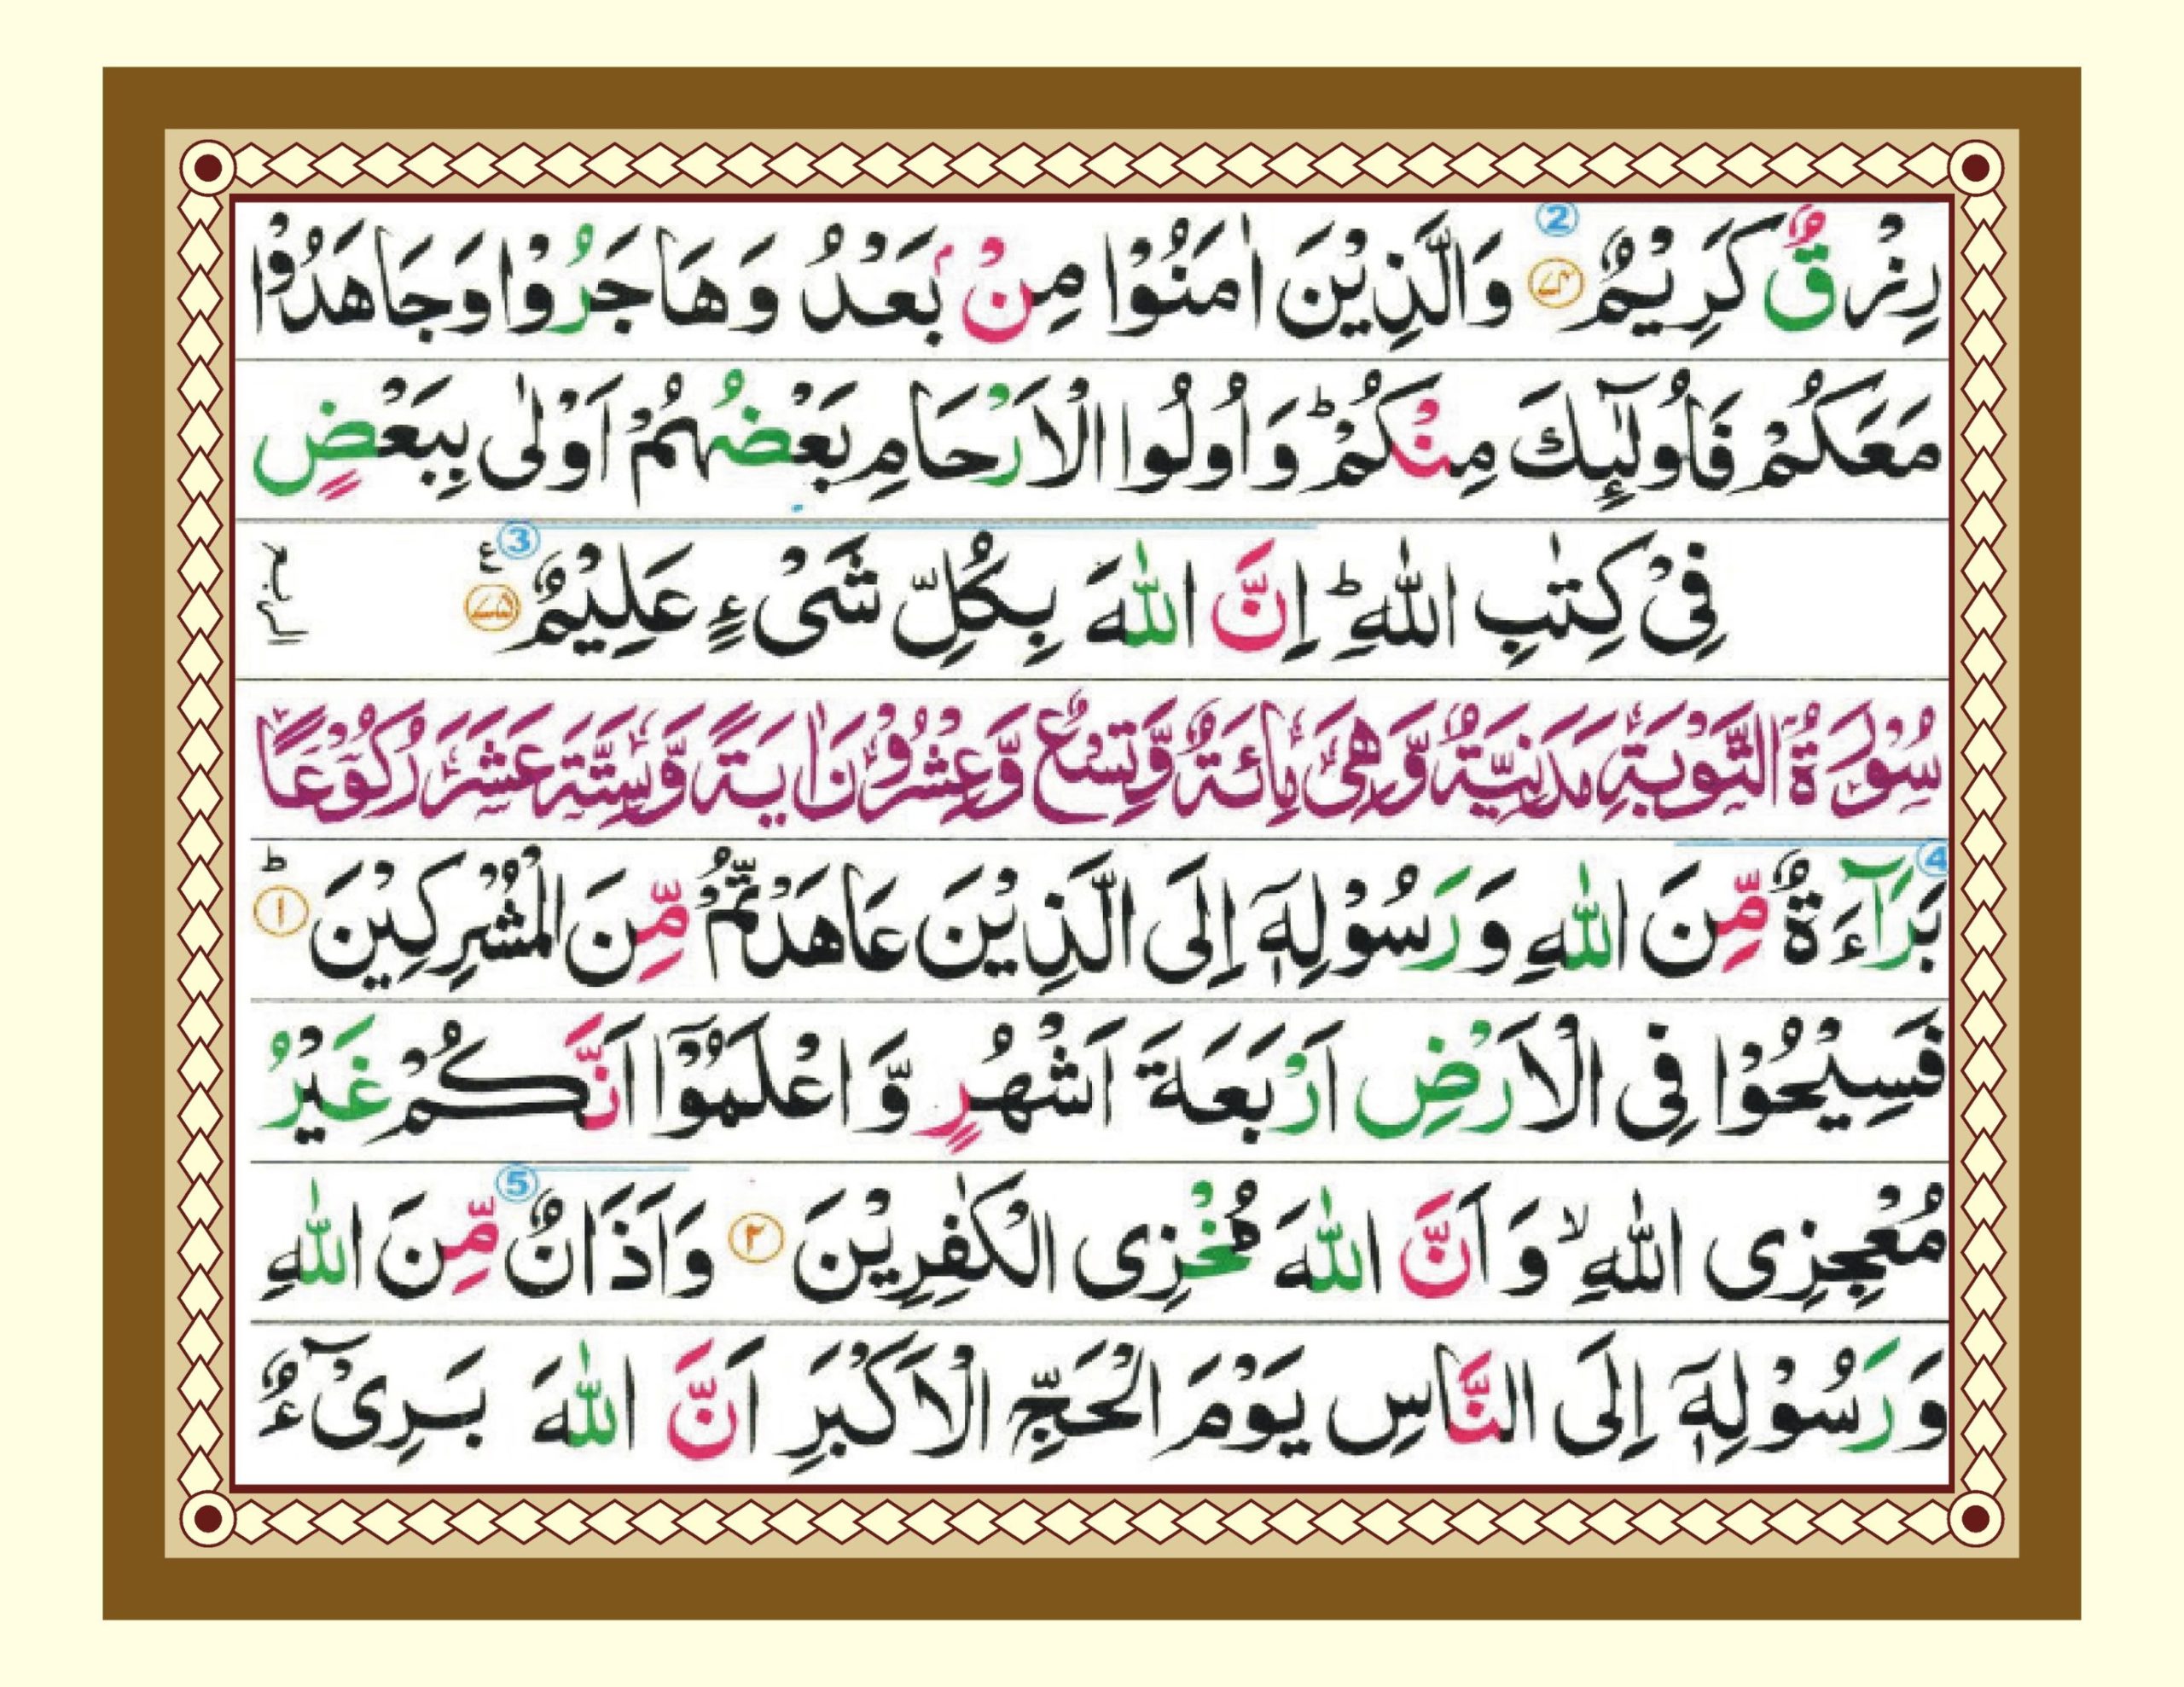 رِزْقٌ كَرِيْمٌ ﴿۷۴﴾ ② وَالَّذِيْنَ اٰمَنُوْا مِنْۢ بَعْدُ وَهَاجَرُوْا وَجَاهَدُوْا
مَعَكُمْ فَاُولٰٓئِكَ مِنْكُمْ ؕ وَاُولُوا الْاَرْحَامِ بَعْضُهُمْ اَوْلٰى بِبَعْضٍ
فِىْ كِتٰبِ اللّٰهِ ؕ اِنَّ اللّٰهَ بِكُلِّ شَىْءٍ عَلِيْمٌ ﴿۷۵﴾ ③ ع
سُوْرَةُ التَّوْبَةِ مَدَنِيَّةٌ وَّهِىَ مِائَةٌ وَّتِسْعٌ وَّعِشْرُوْنَ اٰيَةً وَّسِتَّةَ عَشَرَ رُكُوْعًا
④ بَرَآءَةٌ مِّنَ اللّٰهِ وَرَسُوْلِهٖۤ اِلَى الَّذِيْنَ عَاهَدْتُّمْ مِّنَ الْمُشْرِكِيْنَ ﴿۱﴾ ؕ
فَسِيْحُوْا فِى الْاَرْضِ اَرْبَعَةَ اَشْهُرٍ وَّاعْلَمُوْۤا اَنَّكُمْ غَيْرُ
مُعْجِزِى اللّٰهِ ۙ وَاَنَّ اللّٰهَ مُخْزِى الْكٰفِرِيْنَ ﴿۲﴾ وَاَذَانٌ ⑤ مِّنَ اللّٰهِ
وَرَسُوْلِهٖۤ اِلَى النَّاسِ يَوْمَ الْحَجِّ الْاَكْبَرِ اَنَّ اللّٰهَ بَرِىْٓءٌ